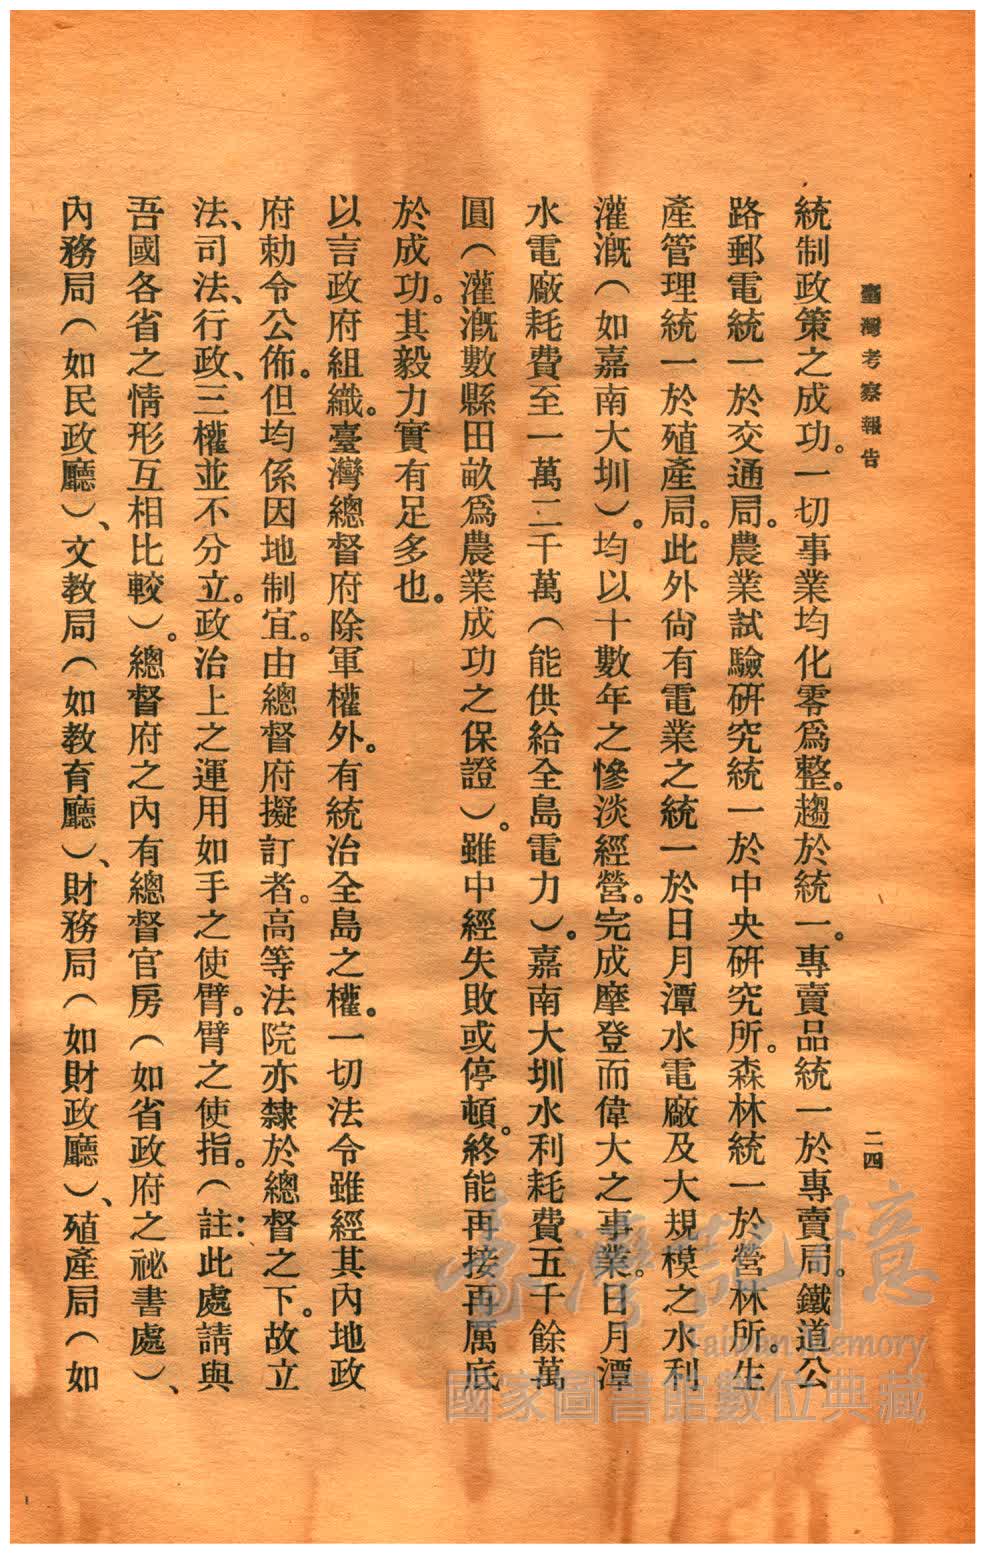 臺灣考察報告
二四
統制政策之成功。一切事業均化零爲整。趨於統一。專賣品統一於專賣局。鐵道公
路郵電統一於交通局。農業試驗研究統一於中央研究所。森林統一於營林所。生
產管理統一於殖產局。此外尙有電業之統一於日月潭水電廠及大規模之水利
灌漑（如嘉南大圳）。均以十數年之慘淡經營。完成摩登而偉大之事業。日月潭
水電廠耗費至一萬二千萬（能供給全島電力）。嘉南大圳水利耗費五千餘萬
圓（灌漑數縣田畝爲農業成功之保證）。雖中經失敗或停頓。終能再接再厲底
於成功。其毅力實有足多也。
以言政府組織。臺灣總督府除軍權外。有統治全島之權。一切法令雖經其內地政
府勅令公佈。但均係因地制宜。由總督府擬訂者。高等法院亦隸於總督之下。故立
法、司法、行政、三權並不分立。政治上之運用如手之使臂。臂之使指。（註：此處請與
吾國各省之情形互相比較）。總督府之內有總督官房（如省政府之祕書處）、
內務局（如民政廳）、文教局（如教育廳）、財務局（如財政廳）、殖產局（如
臺灣記憶
Taiwan Memory
國家圖書館數位典藏